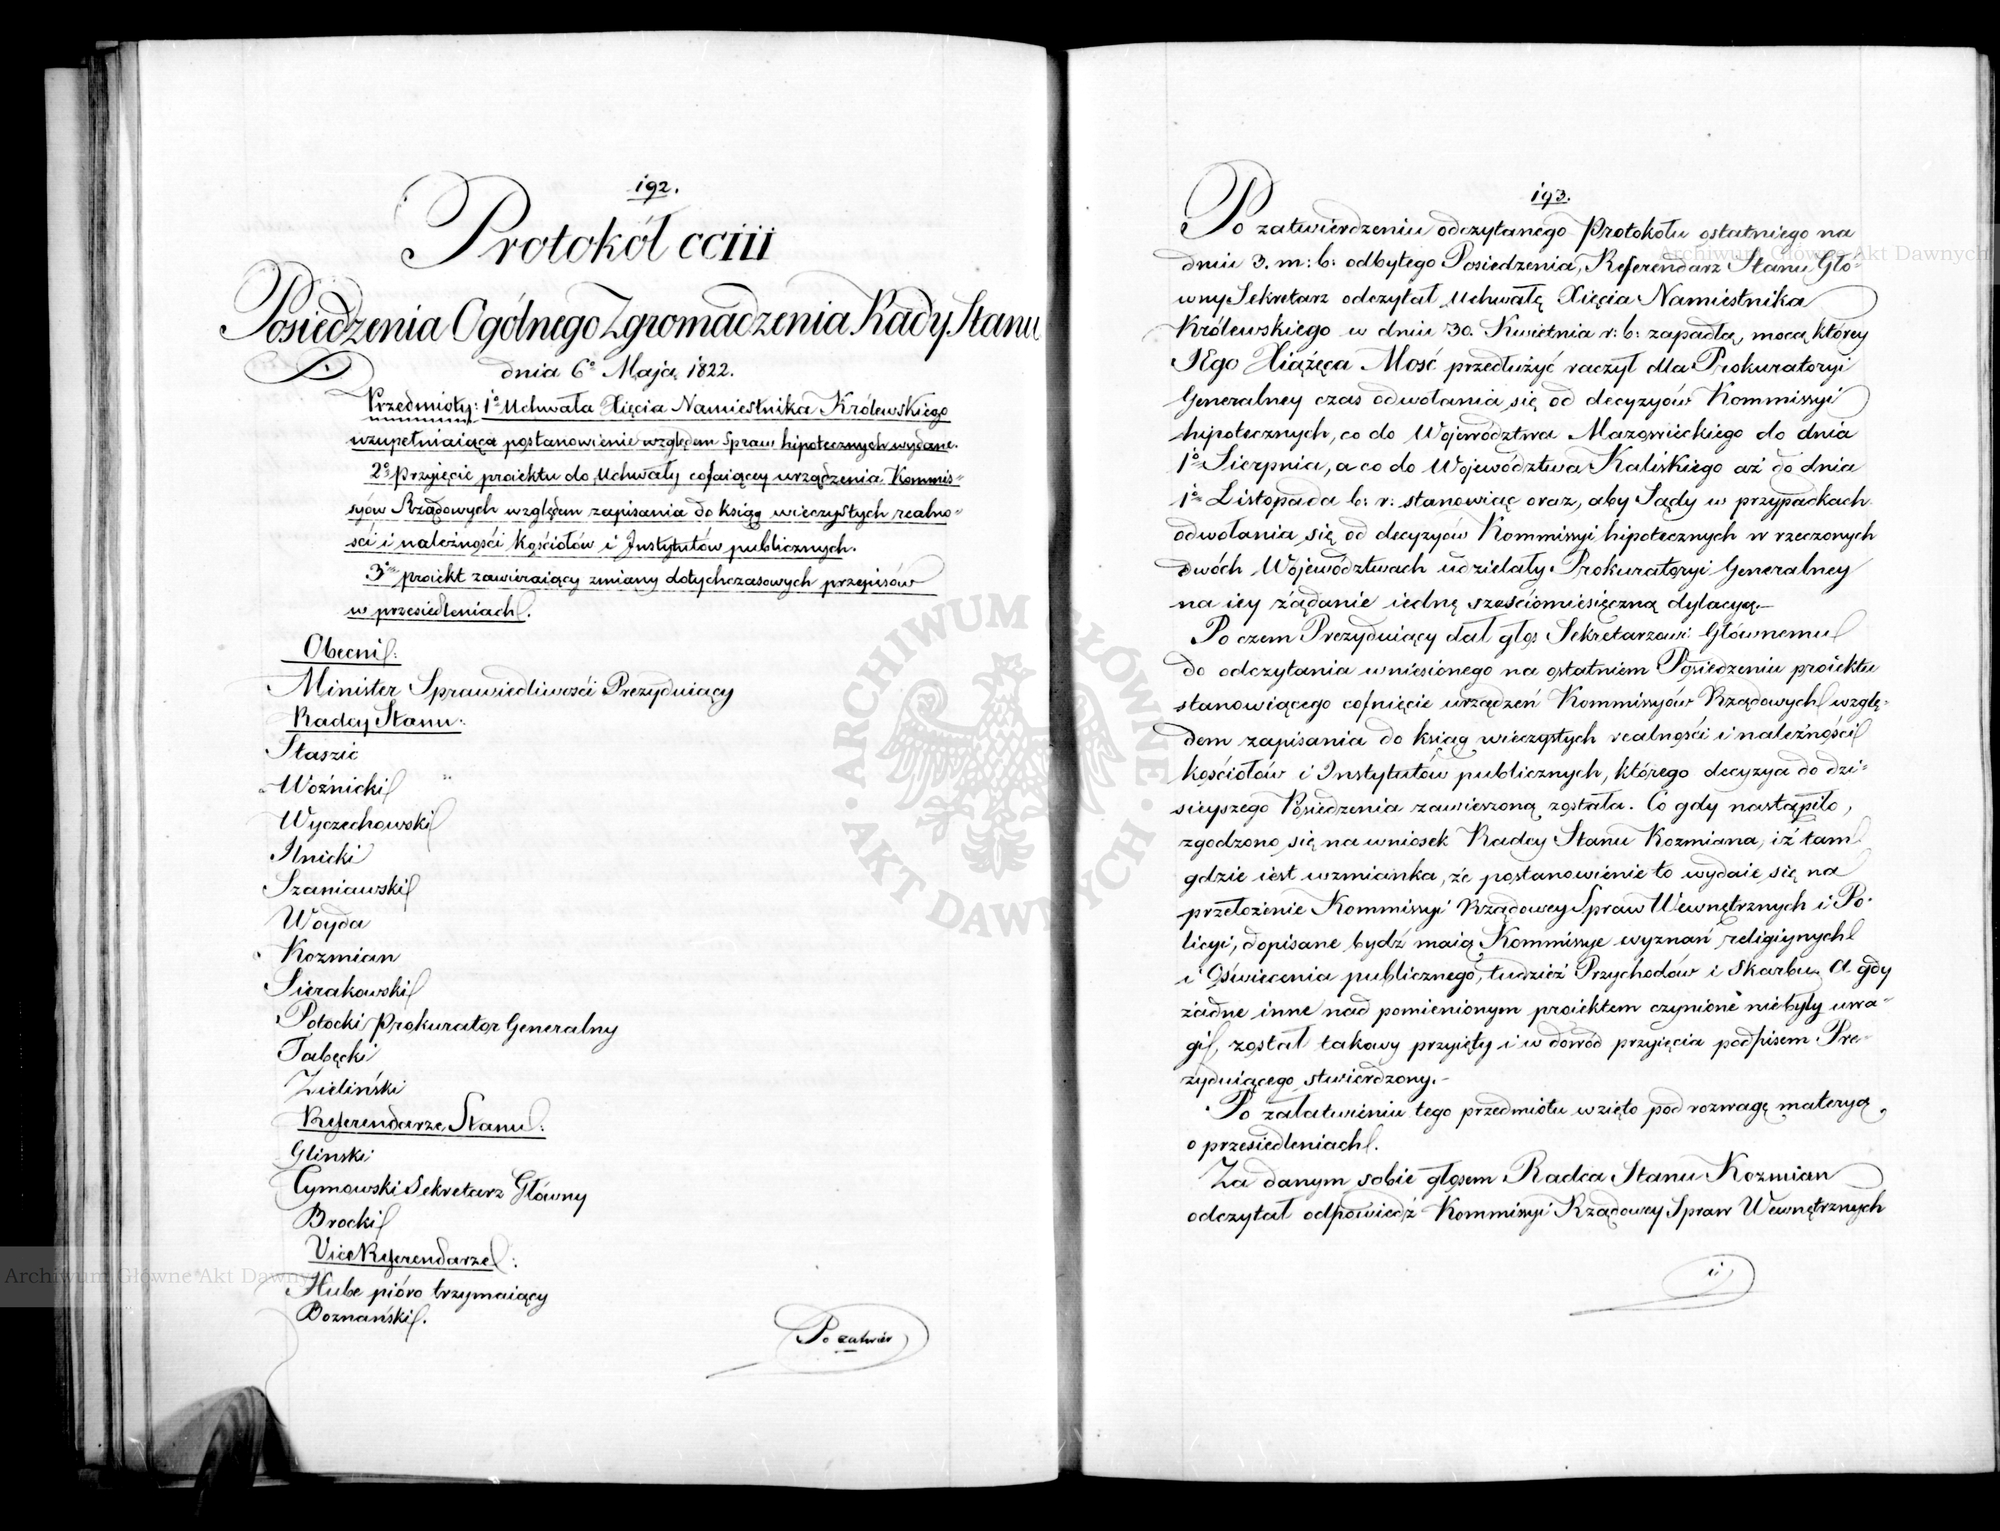 192.
Protokół CCIII
Posiedzenia Ogólnego Zgromadzenia Rady Stanu
dnia 6º Maja 1822.
Przedmioty: 1º Uchwała Xięcia Namiestnika Królewskiego
uzupełniaiąca postanowienie względem Spraw hipotecznych wydane.
2º Przyięcie proiektu do Uchwały cofaiącey urządzenia Kommis-
syów Rządowych względem zapisania do ksiąg wieczystych realno-
ści i należności Kościołów i Instytutów publicznych.
3º proiekt zawieraiący zmiany dotychczasowych przepisów
w przesiedleniach.
Obecni:
Minister Sprawiedliwości Prezyduiący
Radcy Stanu:
Staszic
Woźnicki
Wyczechowski
Ilnicki
Szaniawski
Woyda
Kozmian
Sierakowski
Potocki Prokurator Generalny
Tabęcki
Zieliński
Referendarze Stanu:
Gliński
Cymowski Sekretarz Główny
Brocki
Vice Referendarze:
Hube pióro trzymaiący
Boznański.
Po zatwier
193.
Po zatwierdzeniu odczytanego Protokołu ostatniego na
dniu 3. m: b: odbytego Posiedzenia, Referendarz Stanu Głó-
wny Sekretarz odczytał Uchwałę Xięcia Namiestnika
Królewskiego w dniu 30. Kwietnia r: b: zapadłą, mocą którey
JEgo Xiążęca Mość przedłużyć raczył dla Prokuratoryi
Generalney czas odwołania się od decyzyów Kommissyi
hipotecznych, co do Województwa Mazowieckiego do dnia
1º Sierpnia, a co do Województwa Kaliskiego aż do dnia
1º Listopada b: r: stanowiąc oraz, aby Sądy w przypadkach
odwołania się od decyzyów Kommissyi hipotecznych w rzeczonych
dwóch Województwach udzielały Prokuratoryi Generalney
na iey żądanie iednę sześciomiesięczną dylacyą.—
Poczem Prezyduiący dał głos Sekretarzowi Głównemu
do odczytania wniesionego na ostatniem Posiedzeniu proiektu
stanowiącego cofnięcie urządzeń Kommissyów Rządowych wzglę-
dem zapisania do ksiąg wieczystych realności i należności
kościołów i Instytutów publicznych, którego decyzya do dzi-
sieyszego Posiedzenia zawieszoną została. Co gdy nastąpiło,
zgodzono się na wniosek Radcy Stanu Kozmiana, iż tam
gdzie iest wzmianka, że postanowienie to wydaie się na
przełożenie Kommissyi Rządowey Spraw Wewnętrznych i Po-
licyi, dopisane bydź maią Kommissye wyznań religiynych
i Oświecenia publicznego, tudzież Przychodów i Skarbu. A gdy
żadne inne nad pomienionym proiektem czynione niebyły uwa-
gi, został takowy przyięty i w dowód przyięcia podpisem Pre-
zyduiącego stwierdzony.—
Po załatwieniu tego przedmiotu wzięto pod rozwagę materyą
o przesiedleniach.
Za danym sobie głosem Radca Stanu Kozmian
odczytał odpowiedź Kommissyi Rządowey Spraw Wewnętrznych
i
ARCHIWUM GŁÓWNE AKT DAWNYCH
Archiwum Główne Akt Dawnych
Archiwum Główne Akt Dawnych